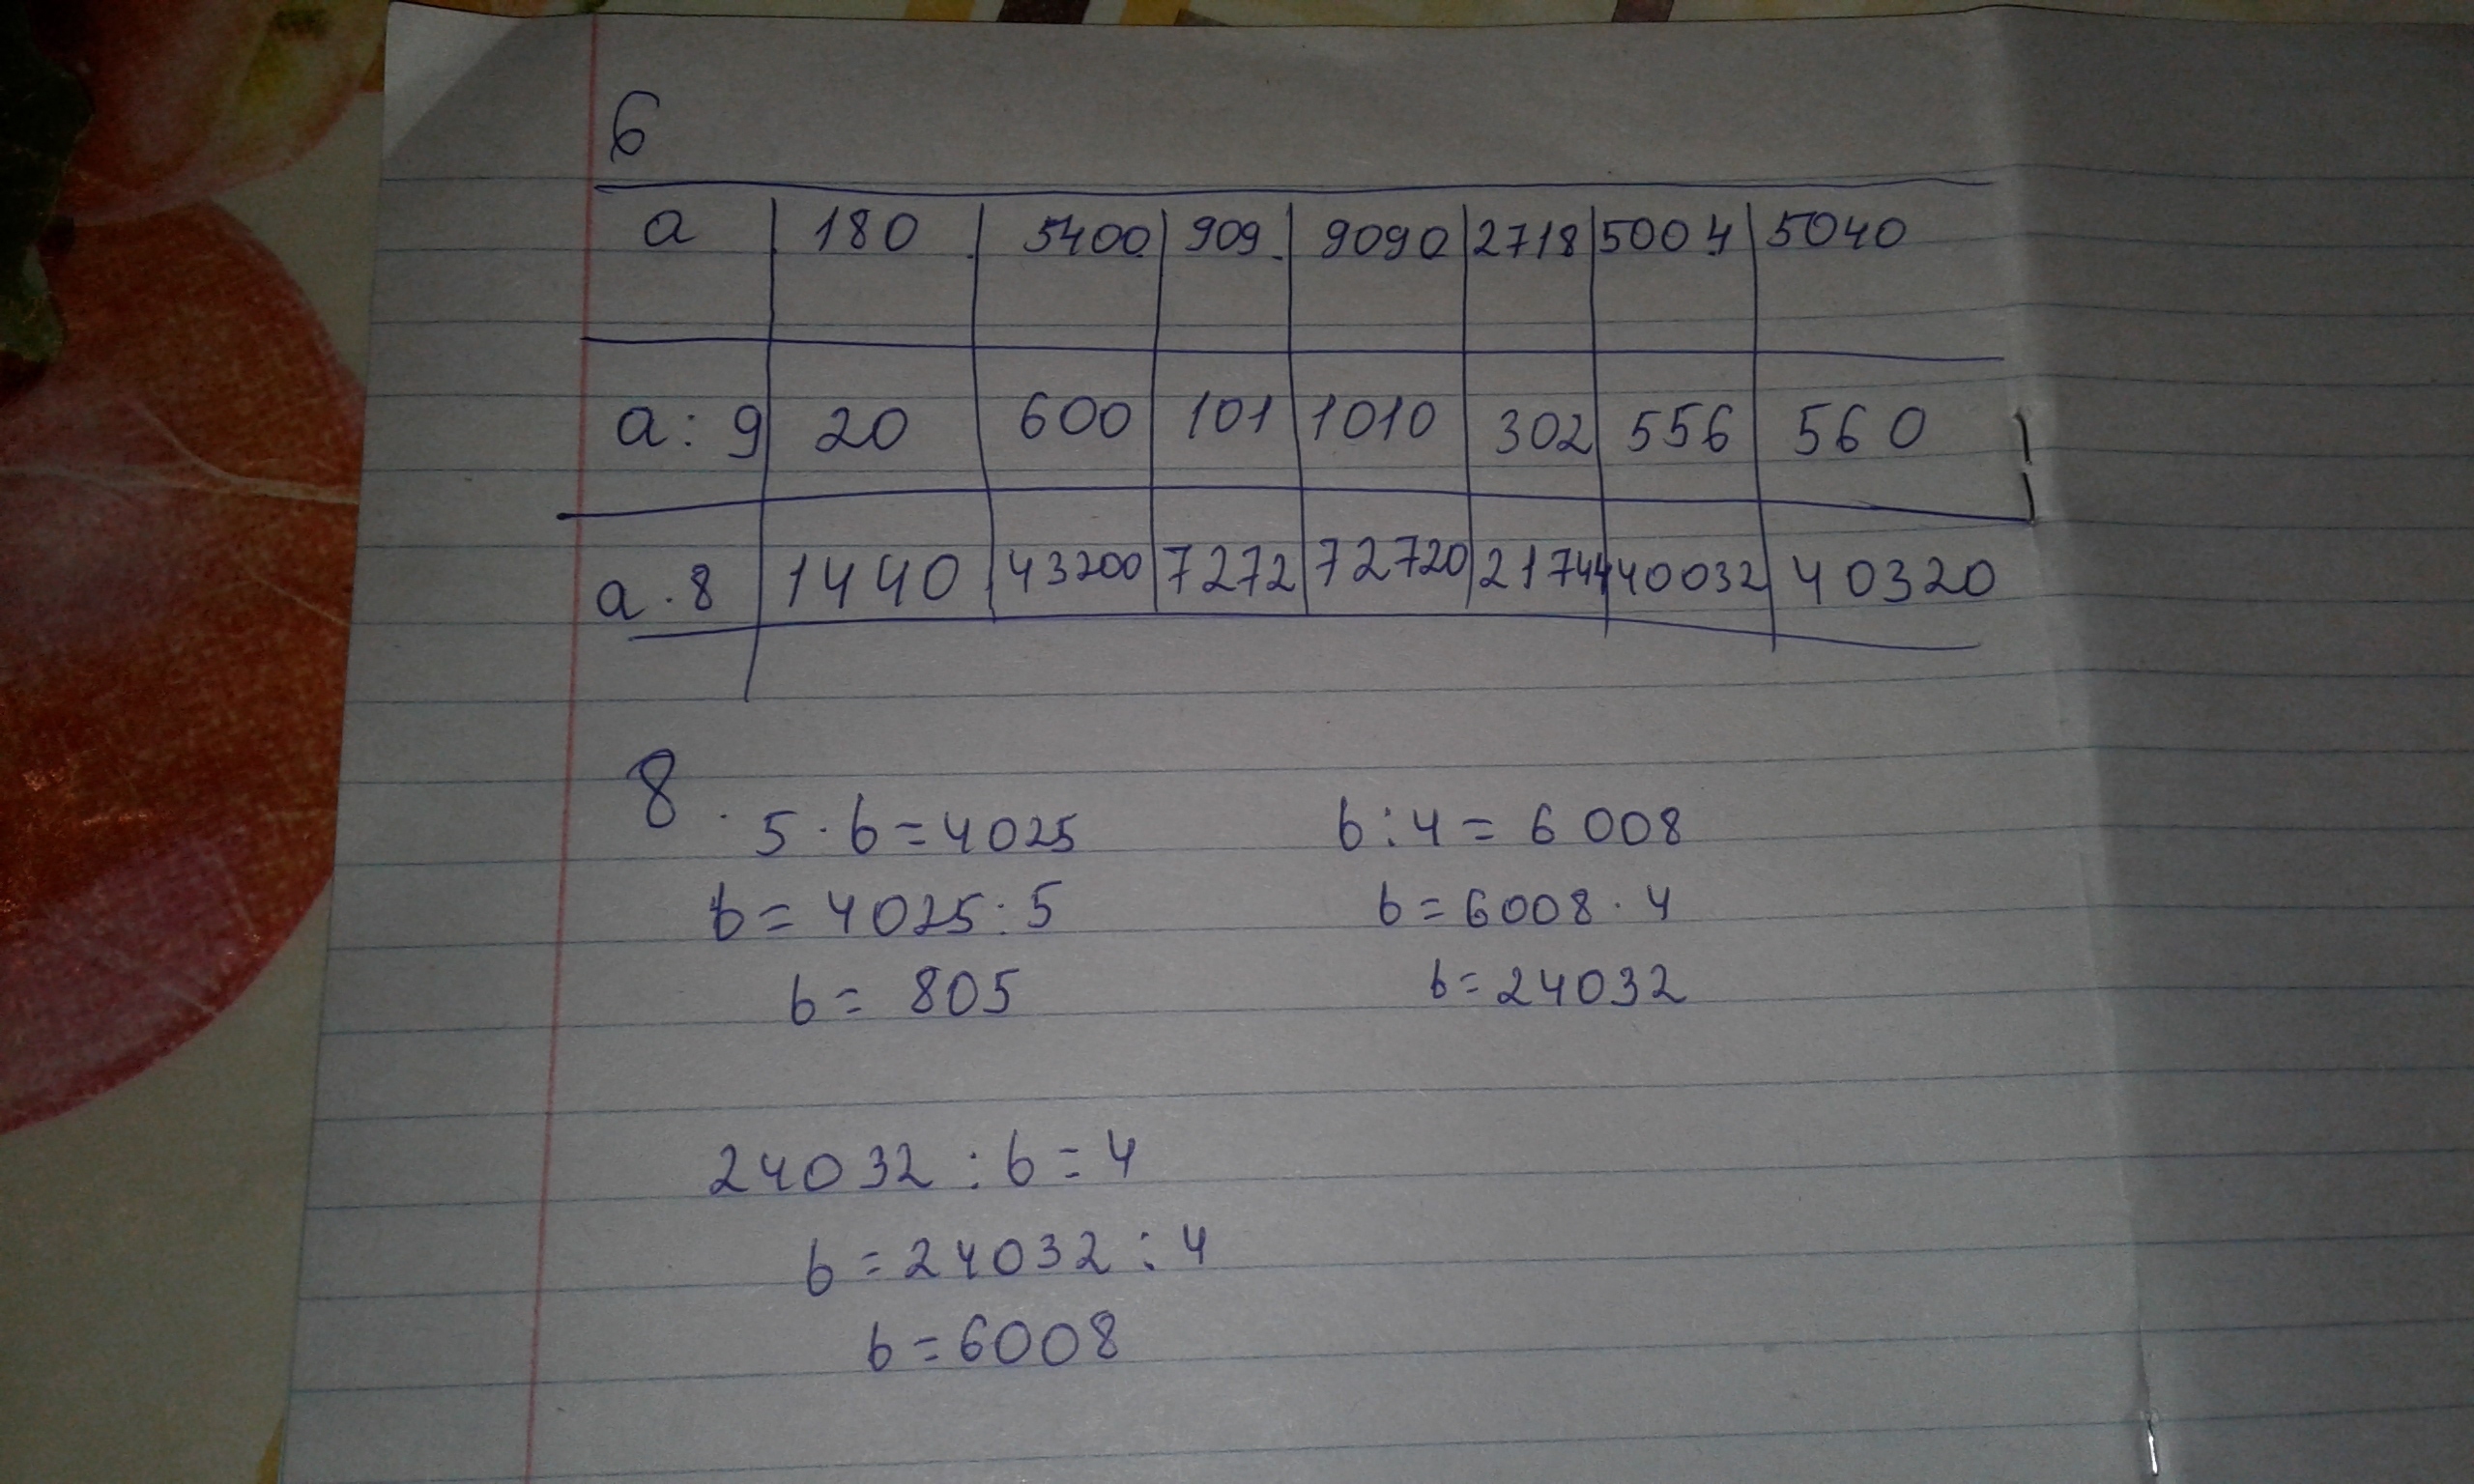 6
a 180 5400 909 9090 2718 5004 5040
a : 9 20 600 101 1010 302 556 560
a · 8 1440 43200 7272 72720 21744 40032 40320
8. 5 · b = 4025 b : 4 = 6 008
b = 4025 : 5 b = 6008 · 4
b = 805 b = 24032
24032 : b = 4
b = 24032 : 4
b = 6008